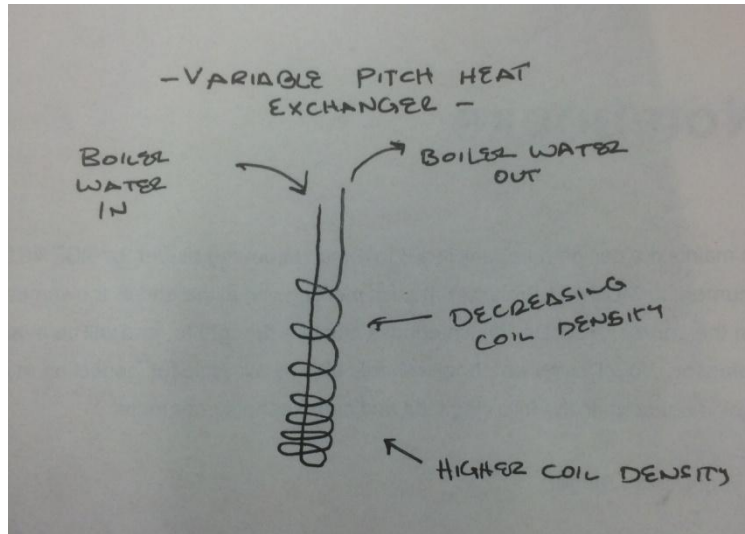 - VARIABLE PITCH HEAT
EXCHANGER -
BOILER
WATER
IN
BOILER WATER
OUT
DECREASING
COIL DENSITY
HIGHER COIL DENSITY